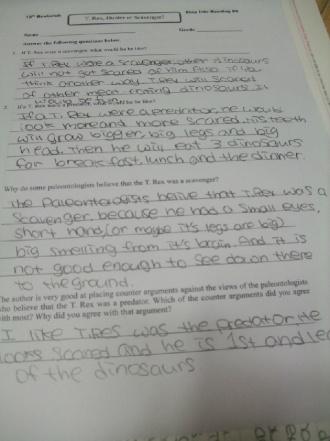 T. Rex, Hunter or Scavenger?
Name
Grade
Answer the following questions below.
1. If T. Rex were a scavenger, what would he be like?
If T. Rex were a scavenger, other dinosaurs
will not got scared of him. Also if we
think another way, T. Rex will scared
of other meat eating dinosaurs. It
would be
2. If T. Rex be like?
If a T. Rex were a predator, he would
look more and more scared, his teeth
will grow bigger, big legs and big
head. Then he will eat 3 dinosaurs
for breakfast, lunch and the dinner.
Why do some paleontologists believe that the T. Rex was a scavenger?
The Paleontologists belive that T.Rex was a
scavenger, because he had a small eyes,
short hand, (or maybe it's legs are big)
big smelling from it's brain. And it is
not good enough to see down there
to the ground.
The author is very good at placing counter arguments against the views of the paleontologists
who believe that the T. Rex was a predator. Which of the counter arguments did you agree
with most? Why did you agree with that argument?
I like T.Rex was the predator. He
looks scared and he is 1st and
of the dinosaurs